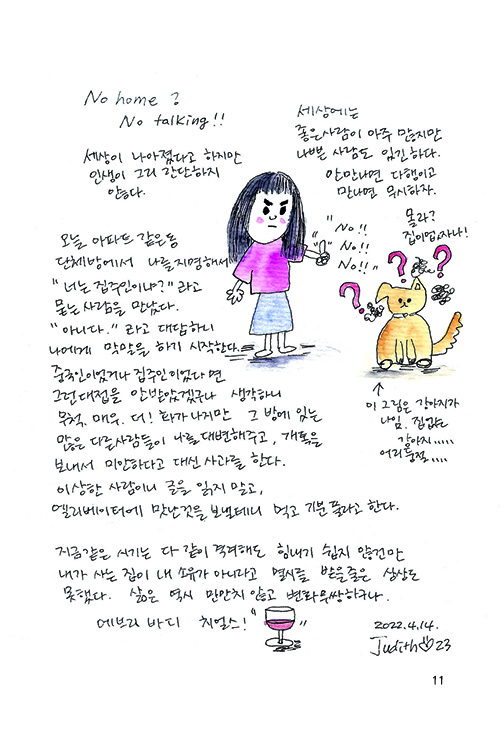 No home?
No talking!!
세상이 나아졌다고 하지만
인생이 그리 간단하지
않다.
세상에는
좋은사람이 아주 많지만
나쁜 사람도 있긴하다.
안만나면 다행이고
만나면 무시하자.
"No!!
No!!
No!!"
몰라?
집이없자나!
???
오늘 아파트 같은동
단체방에서 나를지명해서
"너는 집주인이냐?"라고
묻는사람을 만났다.
"아니다."라고 대답하니
나에게 막말을 하기 시작한다.
중국인이었거나 집주인이었다면
그런대접을 안받았겠구나 생각하니
무척. 매우. 더! 화가나지만 그 방에 있는
많은 다른사람들이 나를대변해주고, 개톡을
보내서 미안하다고 대신 사과를 한다.
이상한 사람이니 글을 읽지 말고,
엘리베이터에 맛난것을 보낼테니 먹고 기분 풀라고 한다.
↑
이 그림은 강아지가
나임. 집없는
강아지.....
어리둥절....
지금같은 시기는 다 같이 격려해도 힘내기 쉽지 않건만
내가 사는 집이 내 소유가 아니라고 멸시를 받을줄은 상상도
못했다. 삶은 역시 만만치 않고 변화무쌍하구나.
에브리 바디 치얼스!"
2022.4.14.
Judith 23
11